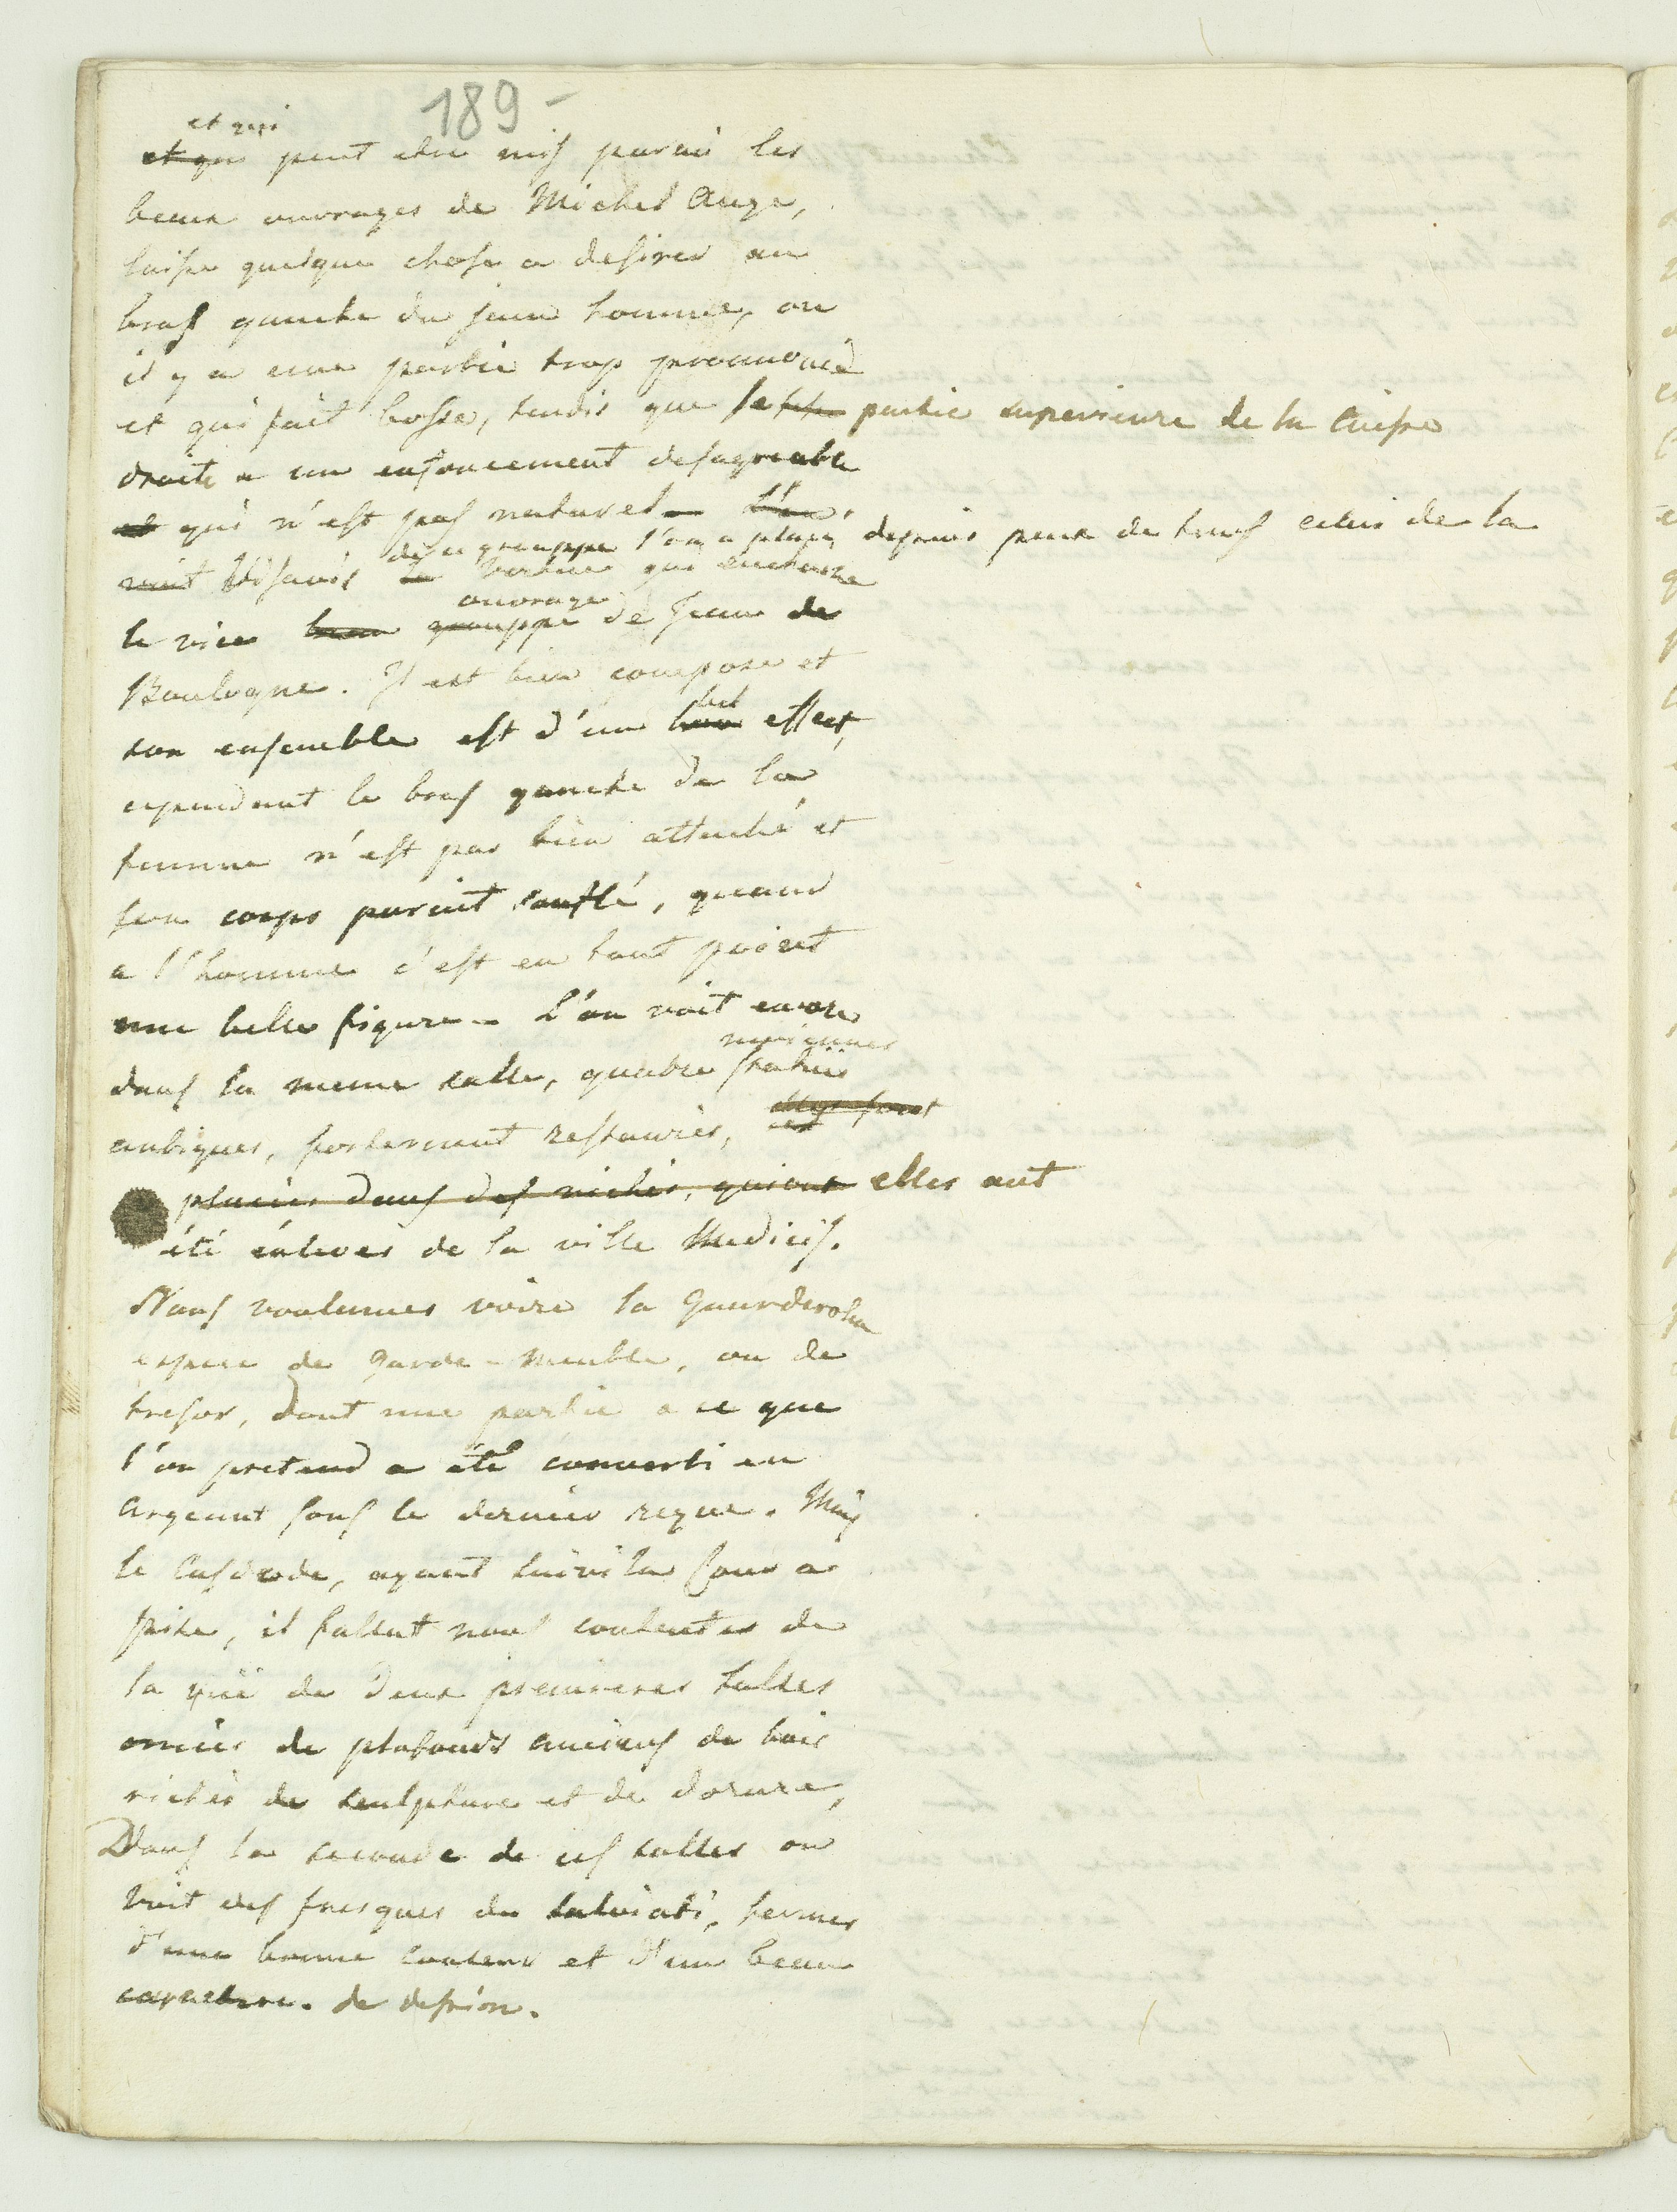 189 -
et qui
et qui peut etre mis parmi les
beaux ouvrages de Michel Ange,
laisse quelque chose a desirer au
bras gauche du jeune homme, ou
il y a une partie trop prononcé
et qui fait bosse, tandis que la partie superieure de la Cuisse
droite a un enfoncement desagreable
et qui n'est pas naturel - L'on
voit Vis avis de ce grouppe l'on a placé depuis peux de tems celui de la
la Vertue qui enchaine
le vice beau grouppe ouvrage de Jean de
Boulogne. Il est bien compose et
son ensemble est d'un bon bel effect,
cependant le bras gauche de la
femme n'est pas bien attaché et
son corps paroit souflé, quand
a l'homme c'est en tout point
une belle figure - L'on voit encore
dans la meme salle, quatre statuës
antiques, fortement restaurés, elles sont
placés dans des niches, qui ont elles ont
été enleves de la ville Medicis.
Nous voulumes voire la Guarderoba
espece de Garde - Meuble, ou de
tresor, dont une partie a ce que
l'on pretend a été converti en
Argeant sous le dernier regne. Mais
le Custode, ayant suivi la Cour a
Pise, il fallut nous contenter de
la vuë de deux premieres salles
ornées de plafonds anciens de bois
riches de sculpture et de dorure,
Dans la seconde de ces salles on
voit des fresques du Salviati, fermes
d'une bonne couleur et d'un beau
caractere. de dession.